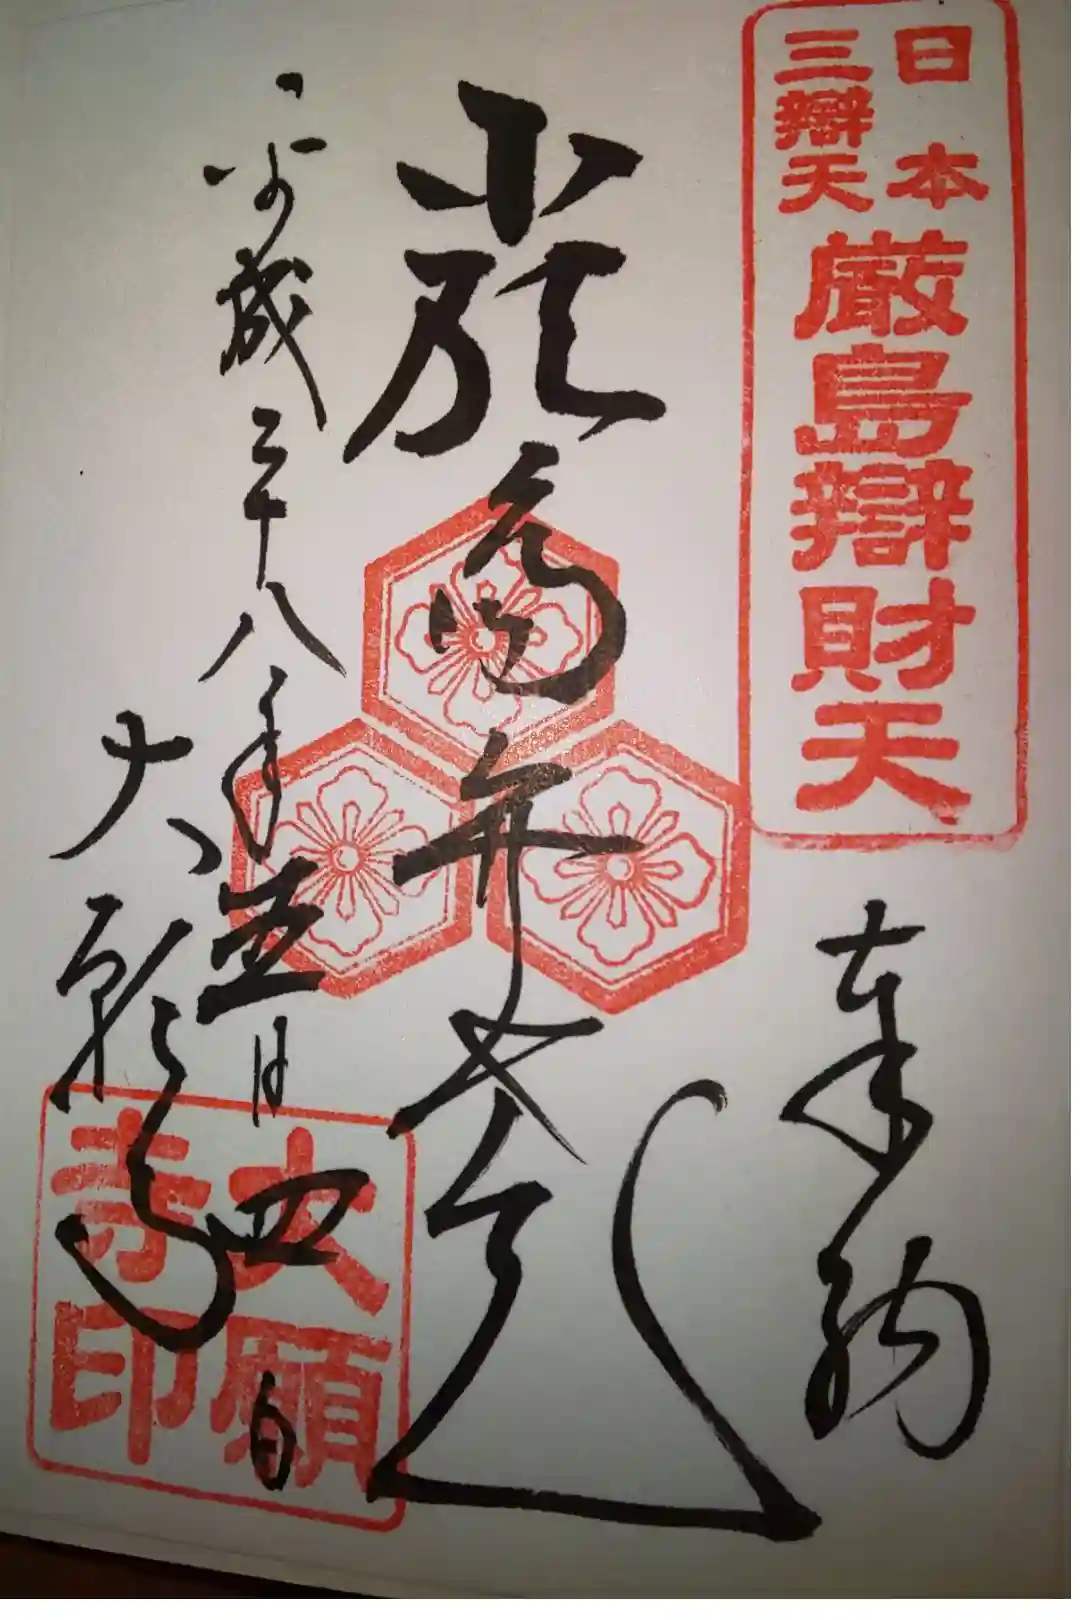 日本
三辯天
厳島辯財天
奉納
嚴島弁才天
平成二十八年
月
日
大願寺
大願
寺印